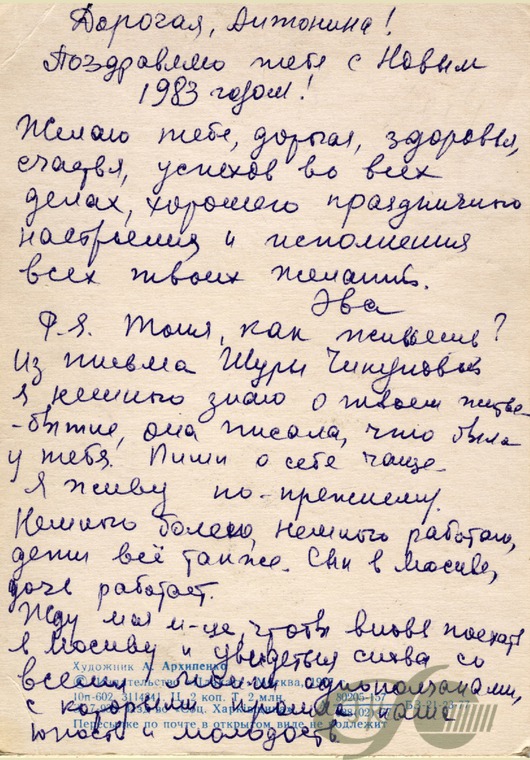 Дорогая, Антонина!
Поздравляю тебя с Новым
1983 годом!
Желаю тебе, дорогая, здоровья,
счастья, успехов во всех
делах, хорошего праздничного
настроения и исполнения
всех твоих желаний.
Эва
P.S. Тоня, как живёшь?
Из письма Шуры Чикуновой
я немного знаю о твоём житье
-бытие, она писала, что была
у тебя. Пиши о себе чаще.
Я живу по-прежнему.
Немного болею, немного работаю,
дети всё также. Сын в Москве,
дочь работает.
Жду мая м-ца, чтобы вновь поехать
в Москву и увидеться снова со
всеми любимыми однополчанами,
с которыми прошла наша
юность и молодость.
Художник А. Архипенко
Издательство Москва, 198
10п-602, 3114841, Ц. 2 коп. Т. 2 млн.
80205-157
БЗ-21-23-77
Пересылке по почте в открытом виде не подлежит